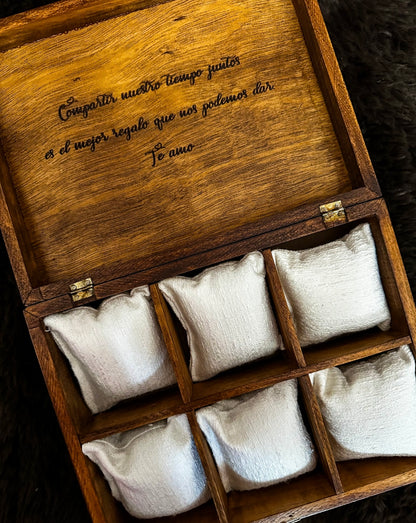 Compartir nuestro tiempo juntos
es el mejor regalo que nos podemos dar.
Te amo